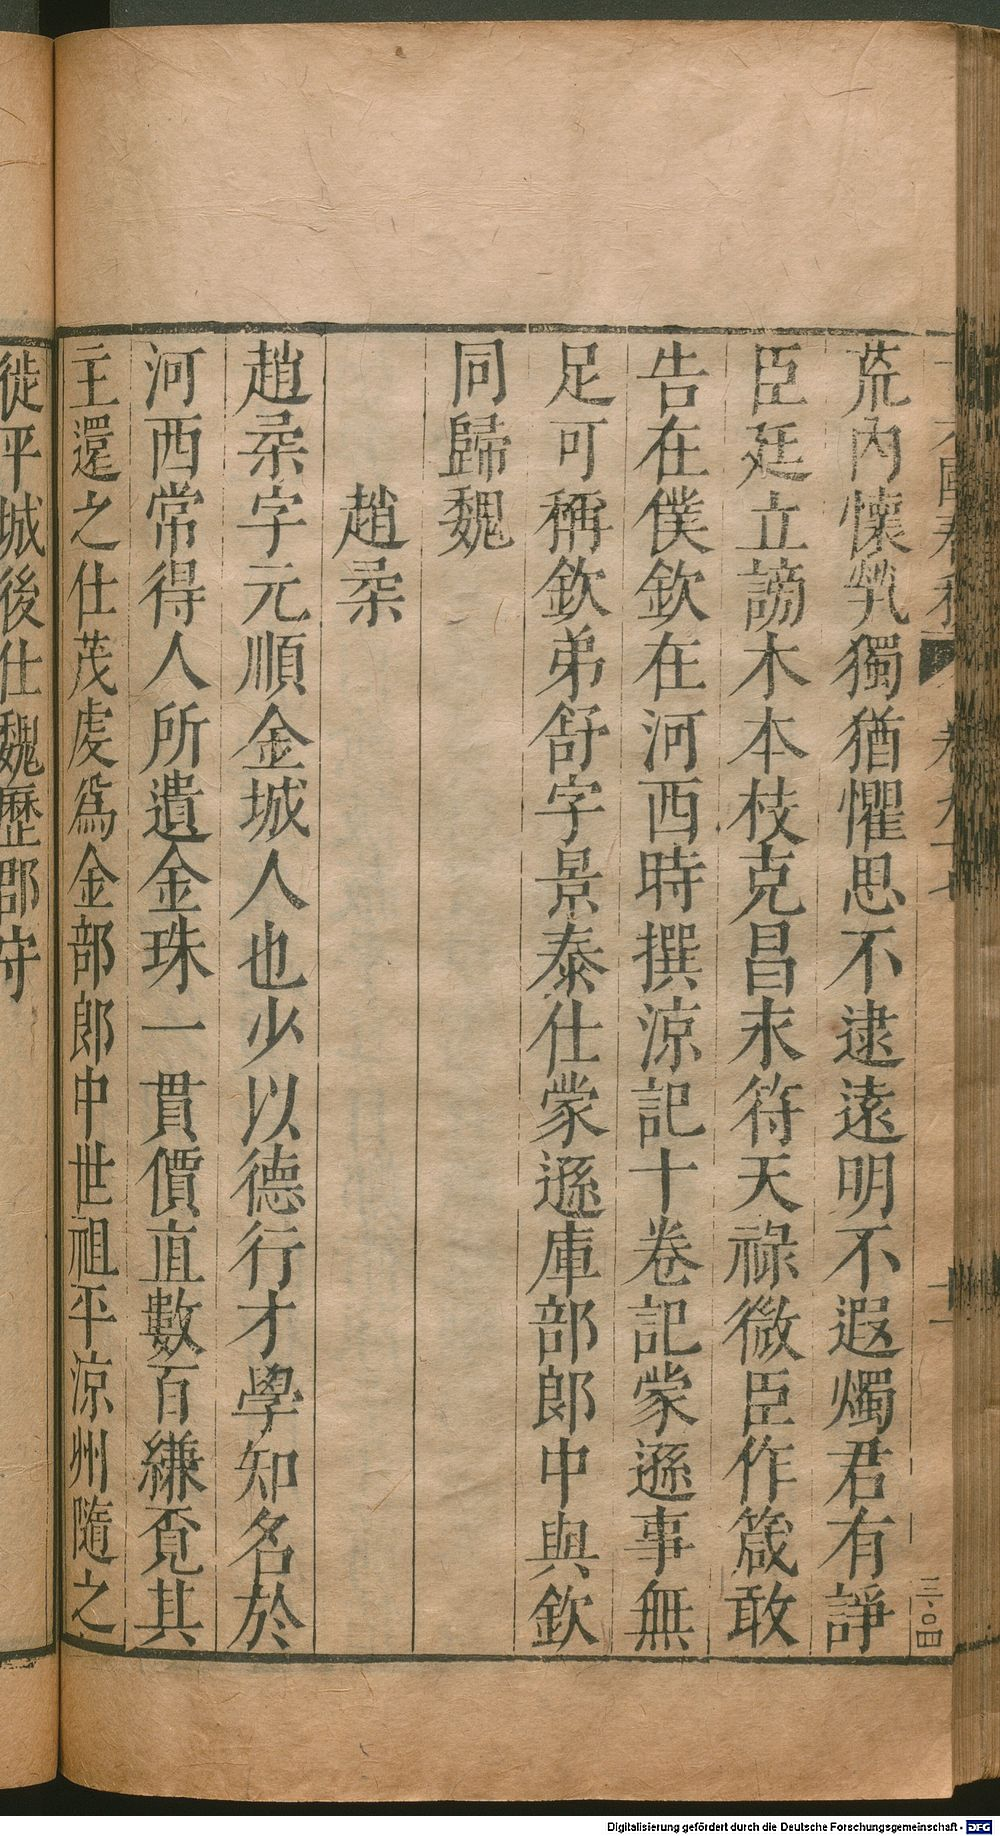 荒內懷煢獨猶懼思不逮遠明不遐燭君有諍
臣廷立謗木本枝克昌永符天祿微臣作箴敢
告在僕欽在河西時撰涼記十卷記蒙遜事無
足可稱欽弟舒字景泰仕蒙遜庫部郎中與欽
同歸魏
趙柔
趙柔字元順金城人也少以德行才學知名於
河西常得人所遺金珠一貫價直數百縑覔其
主還之仕茂虔爲金部郎中世祖平涼州隨之
徙平城後仕魏歷郡守
三〇四
Digitalisierung gefördert durch die Deutsche Forschungsgemeinschaft - DFG